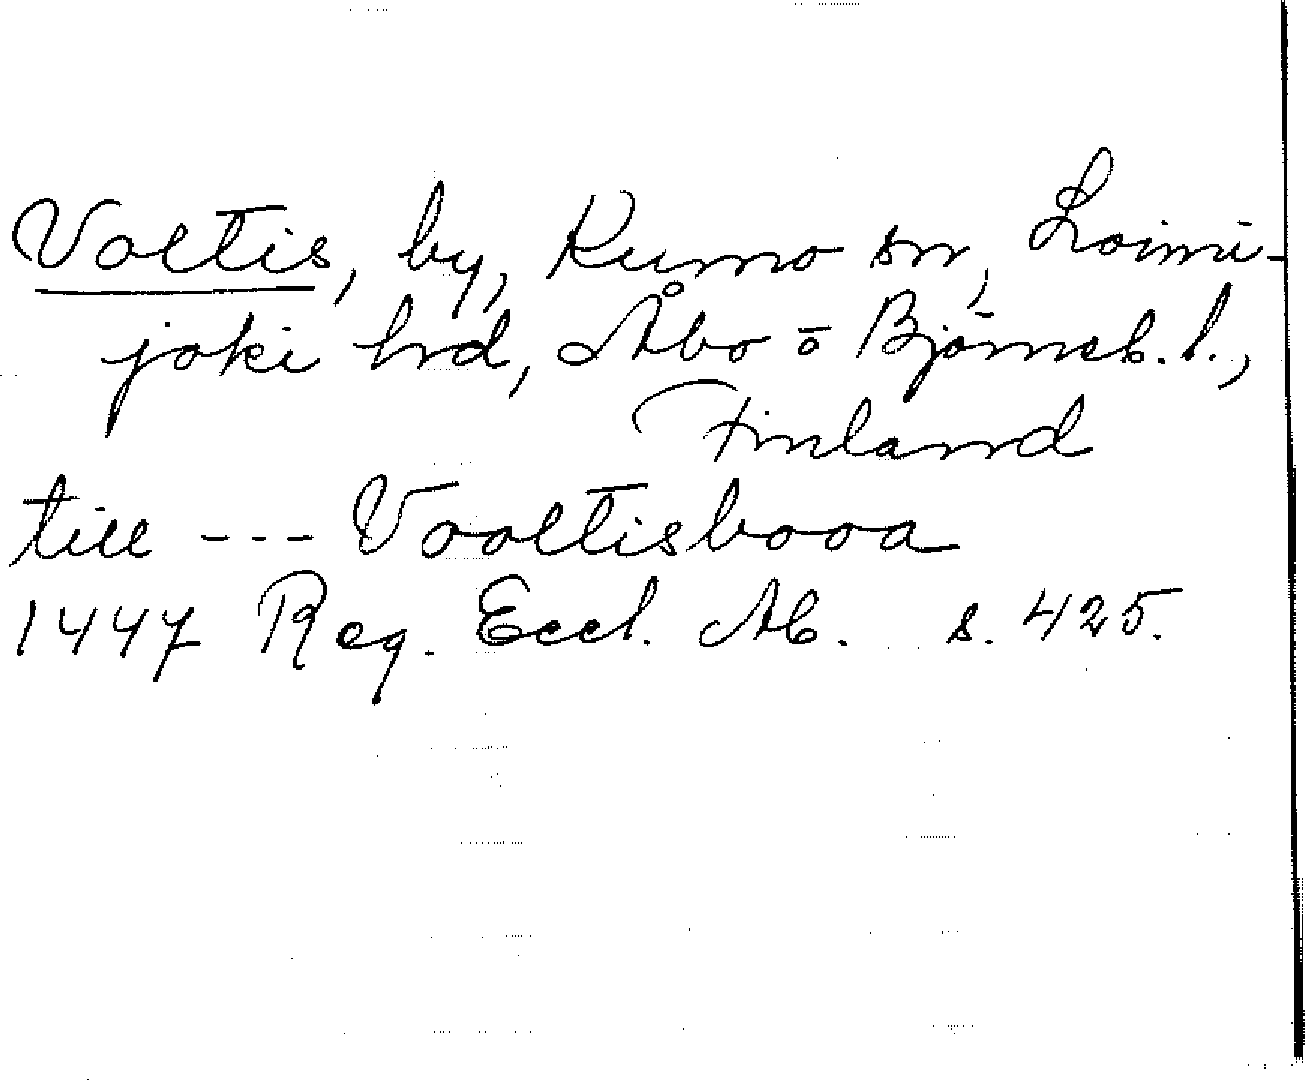 Voltis, by, Kumo sn, Loimi-
joki hrd, Åbo o Björneb. l.,
Finland
till --- Vooltisbooa
1447 Reg. Eccl. Ab. s. 425.